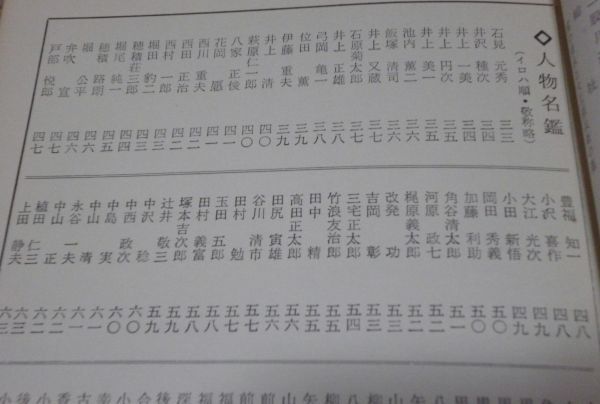 ◇人物名鑑
(イロハ順・敬称略)
石見 元秀 三三
井沢 種次 三四
井上 一美 三四
井上 円次 三五
井上 美一 三五
池内 薫二 三六
飯塚 清司 三六
井上 又蔵 三七
石原菊太郎 三七
井上 正雄 三八
弓岡 亀一 三八
位田 薫 三九
伊藤 重夫 三九
井上 清 四〇
萩原仁一郎 四〇
八家 正俊 四一
花岡 愿 四一
西川 重夫 四二
西田 正治 四二
西村 一二 四三
堀田 豹二 四三
穂積荘三郎 四四
堀尾 純一 四四
穂積 路朗 四五
堀 公平 四六
弁吹 宣 四六
戸部 悦郎 四七
豊福 知一 四八
小沢 喜作 四八
大江 光次 四九
小田 新悟 四九
岡田 秀義 五〇
加藤 利助 五〇
角谷清太郎 五一
河原 政七 五二
梶原義太郎 五二
改発 功 五三
吉岡 彰 五三
三宅正太郎 五四
竹浪友治郎 五五
田中 精 五五
高田正太郎 五六
田尻 寅雄 五六
谷川 清市 五七
田村 勉 五七
玉田 五郎 五八
田村 義富 五八
塚本吉次郎 五九
辻井 敬三 五九
中沢 稔 五九
中西 政次 六〇
中島 実 六〇
中山 清 六一
永谷 一夫 六一
中山 正 六二
植田 仁三 六二
上田 静夫 六三